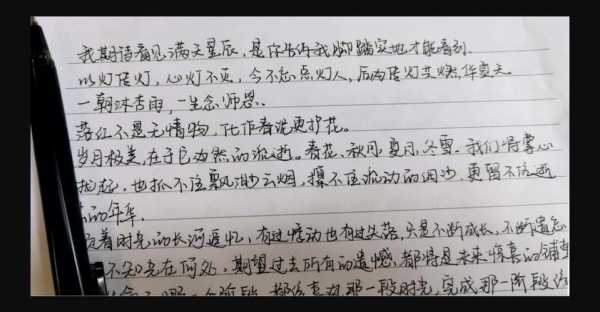 我期待看见满天星辰，是你告诉我脚踏实地才能看到.
以灯传灯，心灯不灭，今不忘点灯人，后为传灯
一朝沐杏雨，一生念师恩.
落红不是无情物，化作春泥更护花。
岁月极美，在于它必然的流逝。春花、秋月、夏日、冬雪.我们将掌心
拢起，也抓不住飘渺云烟，攥不住流动的细沙，更留不住逝
去的年华.
着时光的长河追忆，有过悸动也有过失落，只是不断成长，不断遗忘
不知是在何处，期望过去所有的遗憾，都将是未来惊喜的铺垫
一个阶段，都 那一段时光，完成那一阶段